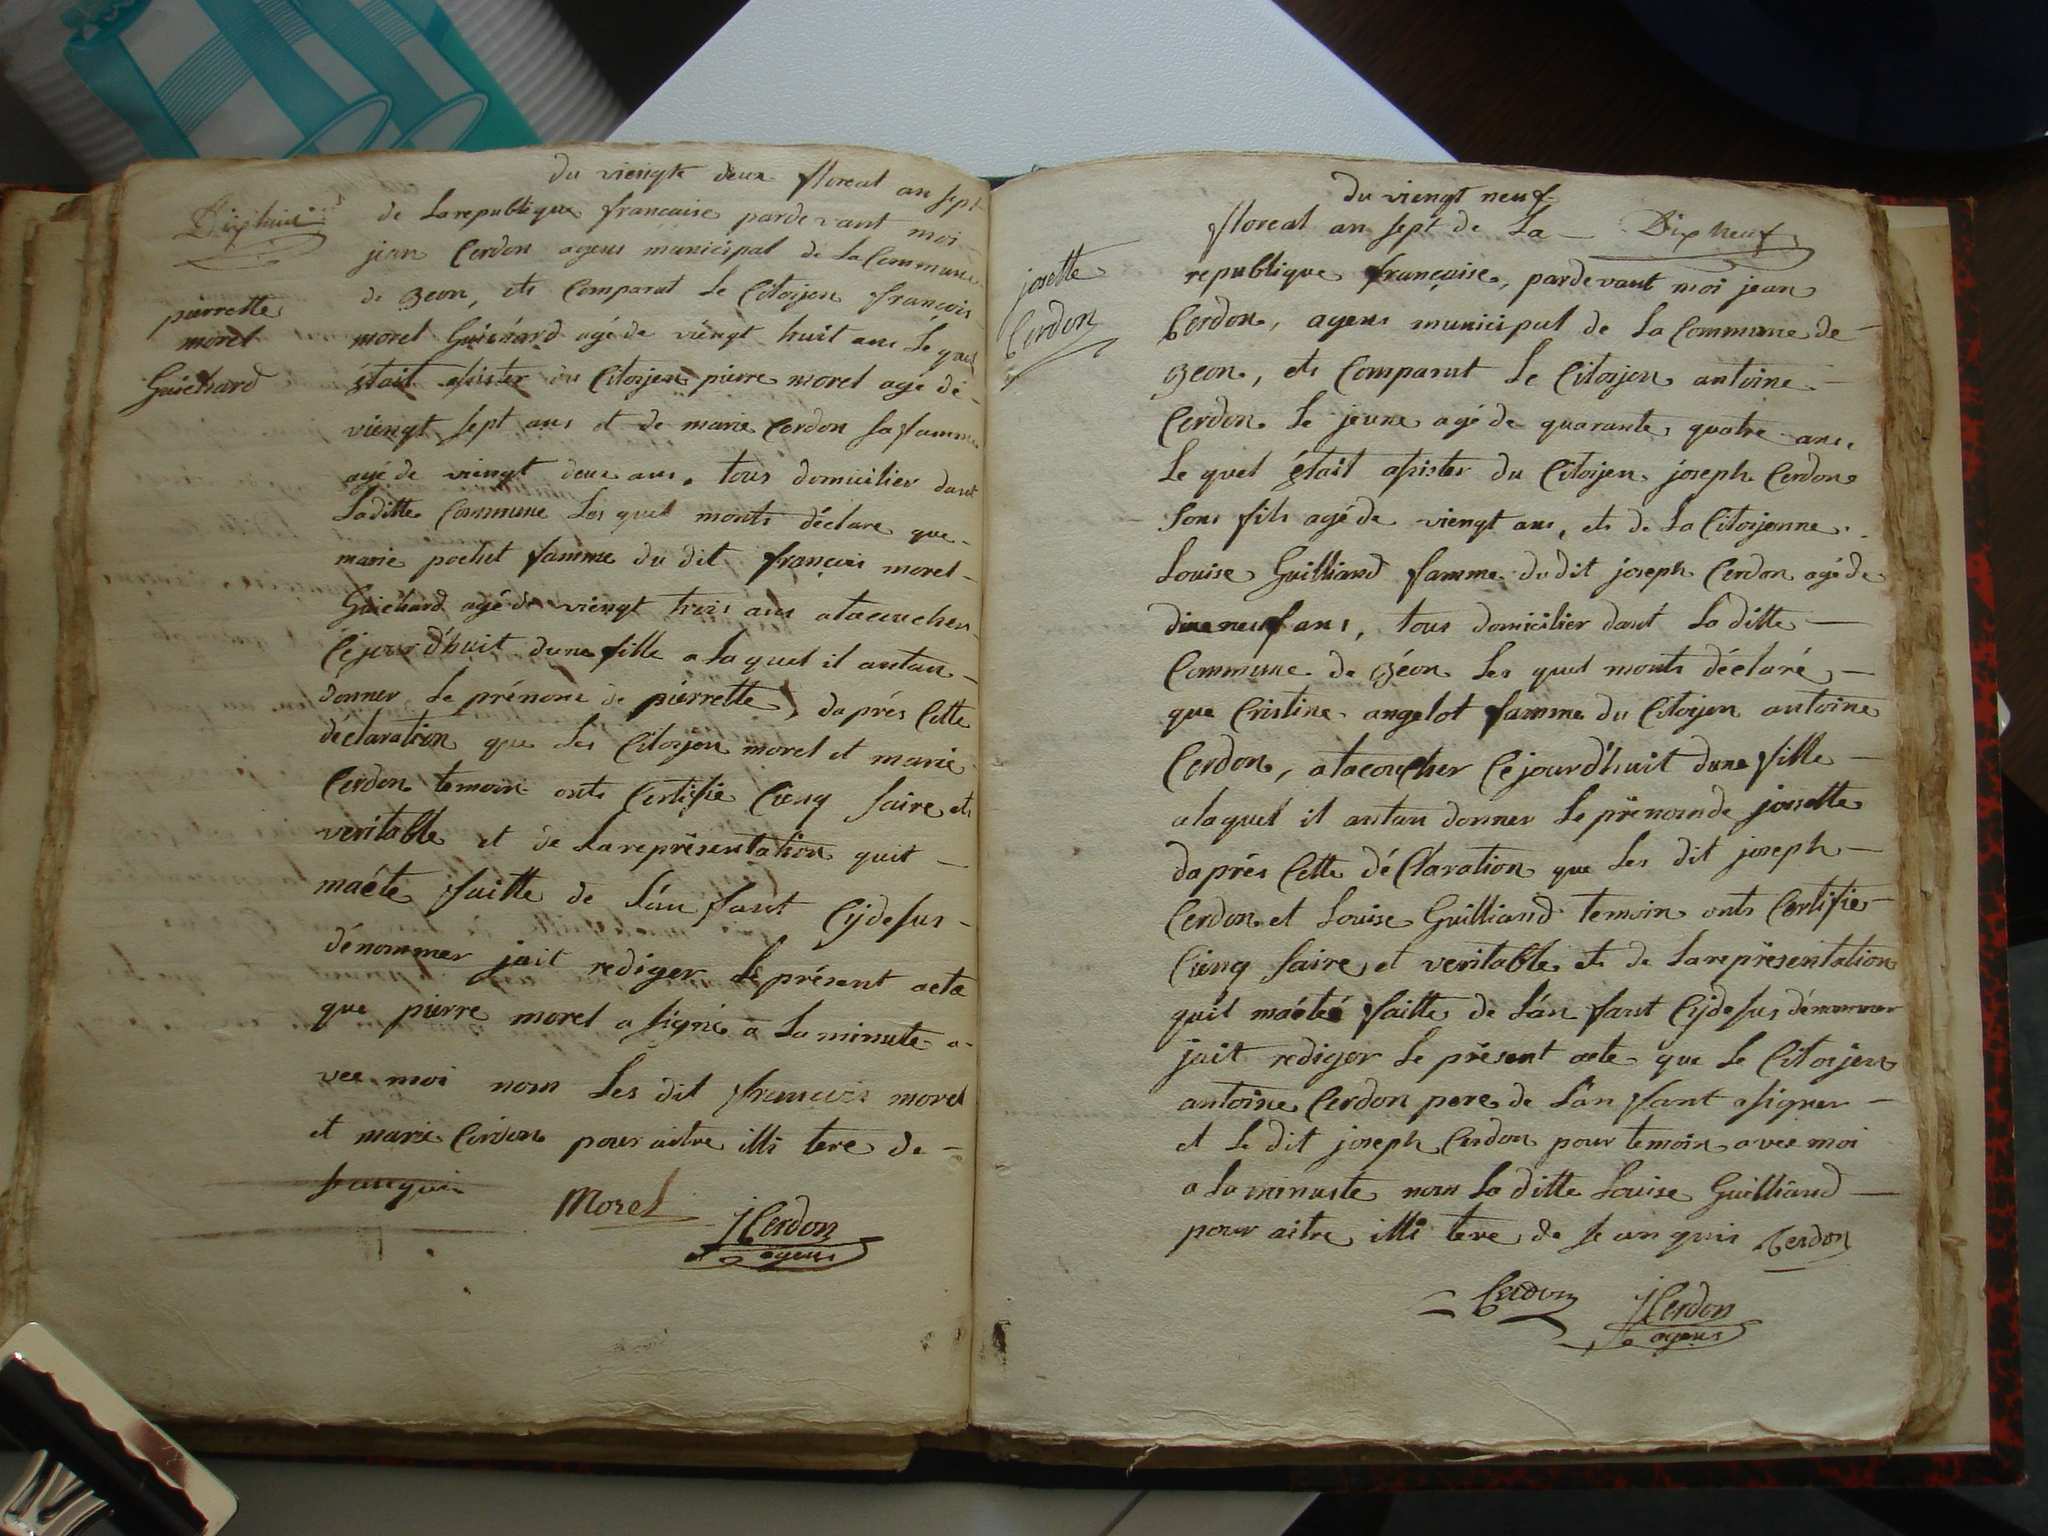 du viengte deux floreal an sept
Dixhuit
de Larepublique francaise pardevant moi
jean Cerdon agens municipal de La Commune
de zeon, ets Comparut Le Citoijen francois
pierrette
morel
Guichard
morel Guichard agé de viengt huit ans Le quel
était asister du Citoijen pierre morel age de
viengt sept ans et de marie Cerdon sa famme
agé de viengt deux ans. tous domicilier dant
Laditte Commune Les quel monts déclare que
marie pochet famme du dit françois morel
Guichard agé de viengt trois ans atacoucher
Cejourd'huit dune fille a La quel il antan
donner Le prénom de pierrette, daprés Cette
déclaration que Les Citoijen morel et marie
Cerdon temoin onts Certifie Cienq saire ets
veritable et de Lareprésentation quil
maéte faitte de L'an fant Cijdesus
dénommer jait rediger Le présent acte
que pierre morel a signé a La minute a-
vec moi nom Les dit francois morel
et marie Cerdon pour aitre illi tere de
Morel
JCerdon
agens
du viengt neuf
floreal an sept de La
Dix neuf
josette
Cerdon
republique française, pardevant moi jean
Cerdon, agens municipal de La Commune de
zeon, ets Comparut Le Citoijen antoine
Cerdon Le jeune agé de quarante quatre ans,
Le quel était asister du Citoijen joseph Cerdon
Sons fils agé de viengt ans, ets de La Citoijenne
Louise Guilliand famme du dit joseph Cerdon agé de
dixe neuf ans, tous domicilier dant Laditte
Commune de zéon Les quel monts déclaré
que Cristine angelot famme du Citoijen antoine
Cerdon, atacoucher Cejourd'huit dune fille
alaquel il antan donner Le prénom de josette
daprés Cette déClaration que Les dit joseph
Cerdon et Louise Guilliand temoin onts Certifie
Cienq saire et veritable ets de Lareprésentation
quil maéteé faitte de L'an fant Cijdesus dénommer
jait rediger Le présent acte que Le Citoijen
antoine Cerdon pere de L'an fant asigner
et Le dit joseph Cerdon pour temoin avec moi
a La minuste nom La ditte Louise Guilliand
pour aitre illi tere de Se an quis Cerdon
Cerdon
JCerdon
agens